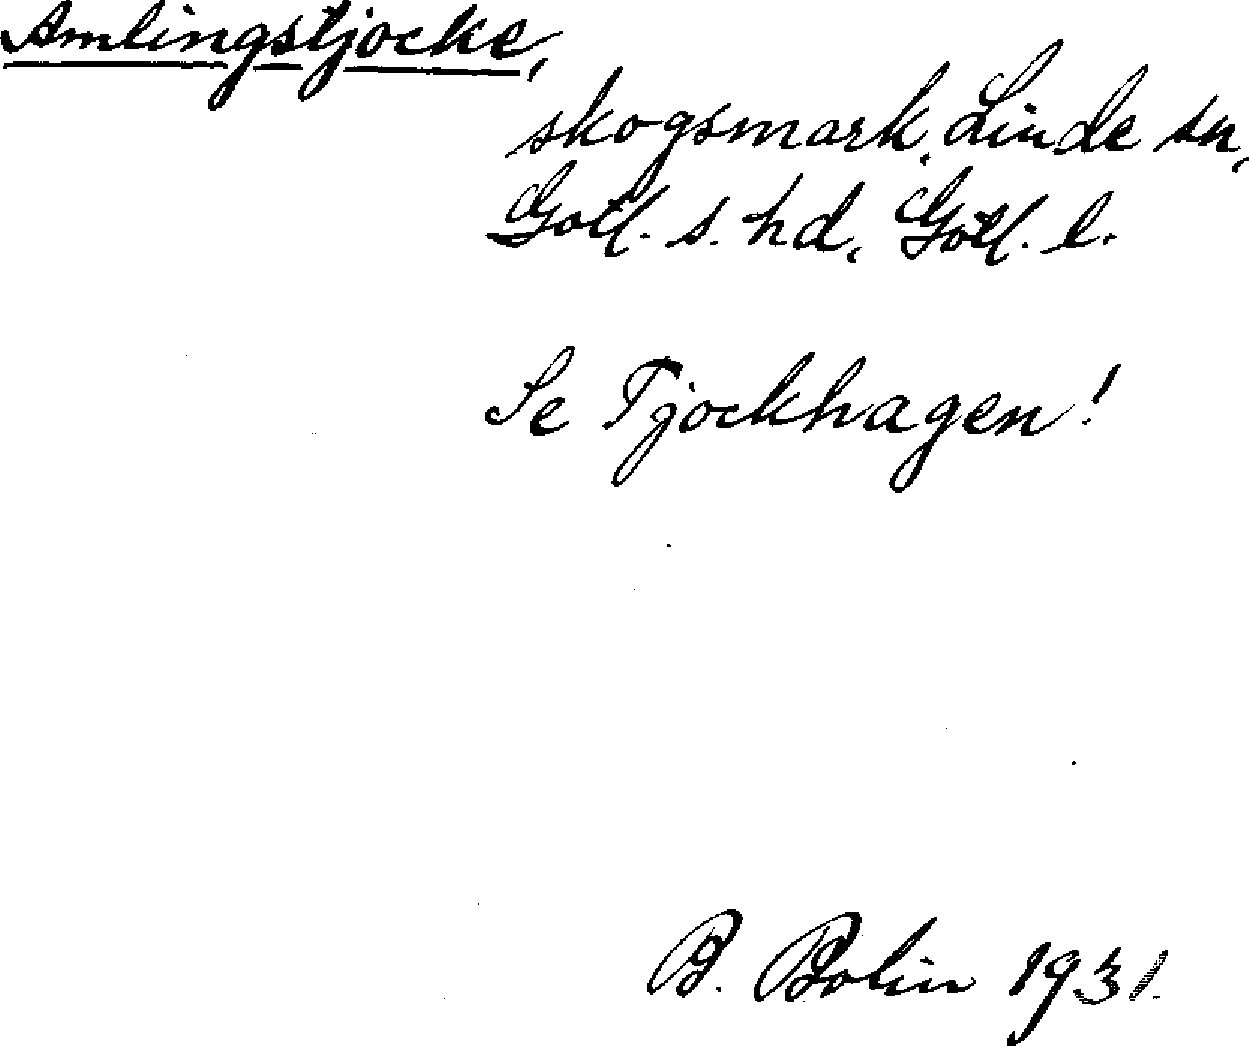 Amlingstjocke,
skogsmark, Linde sn,
Gotl. s. hd, Gotl. l.
Se Tjockhagen!
B. Bolin 1931.